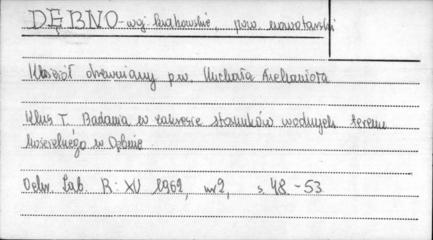 DĘBNO - woj. krakowskie, pow. nowotarski
Kościół drewniany p.w. Michała Archanioła
Klus T. Badania w zakresie stosunków wodnych terenu
kościelnego w Dębnie
Ochr. Zab. R: XV 1962, nr 2, s. 48 - 53